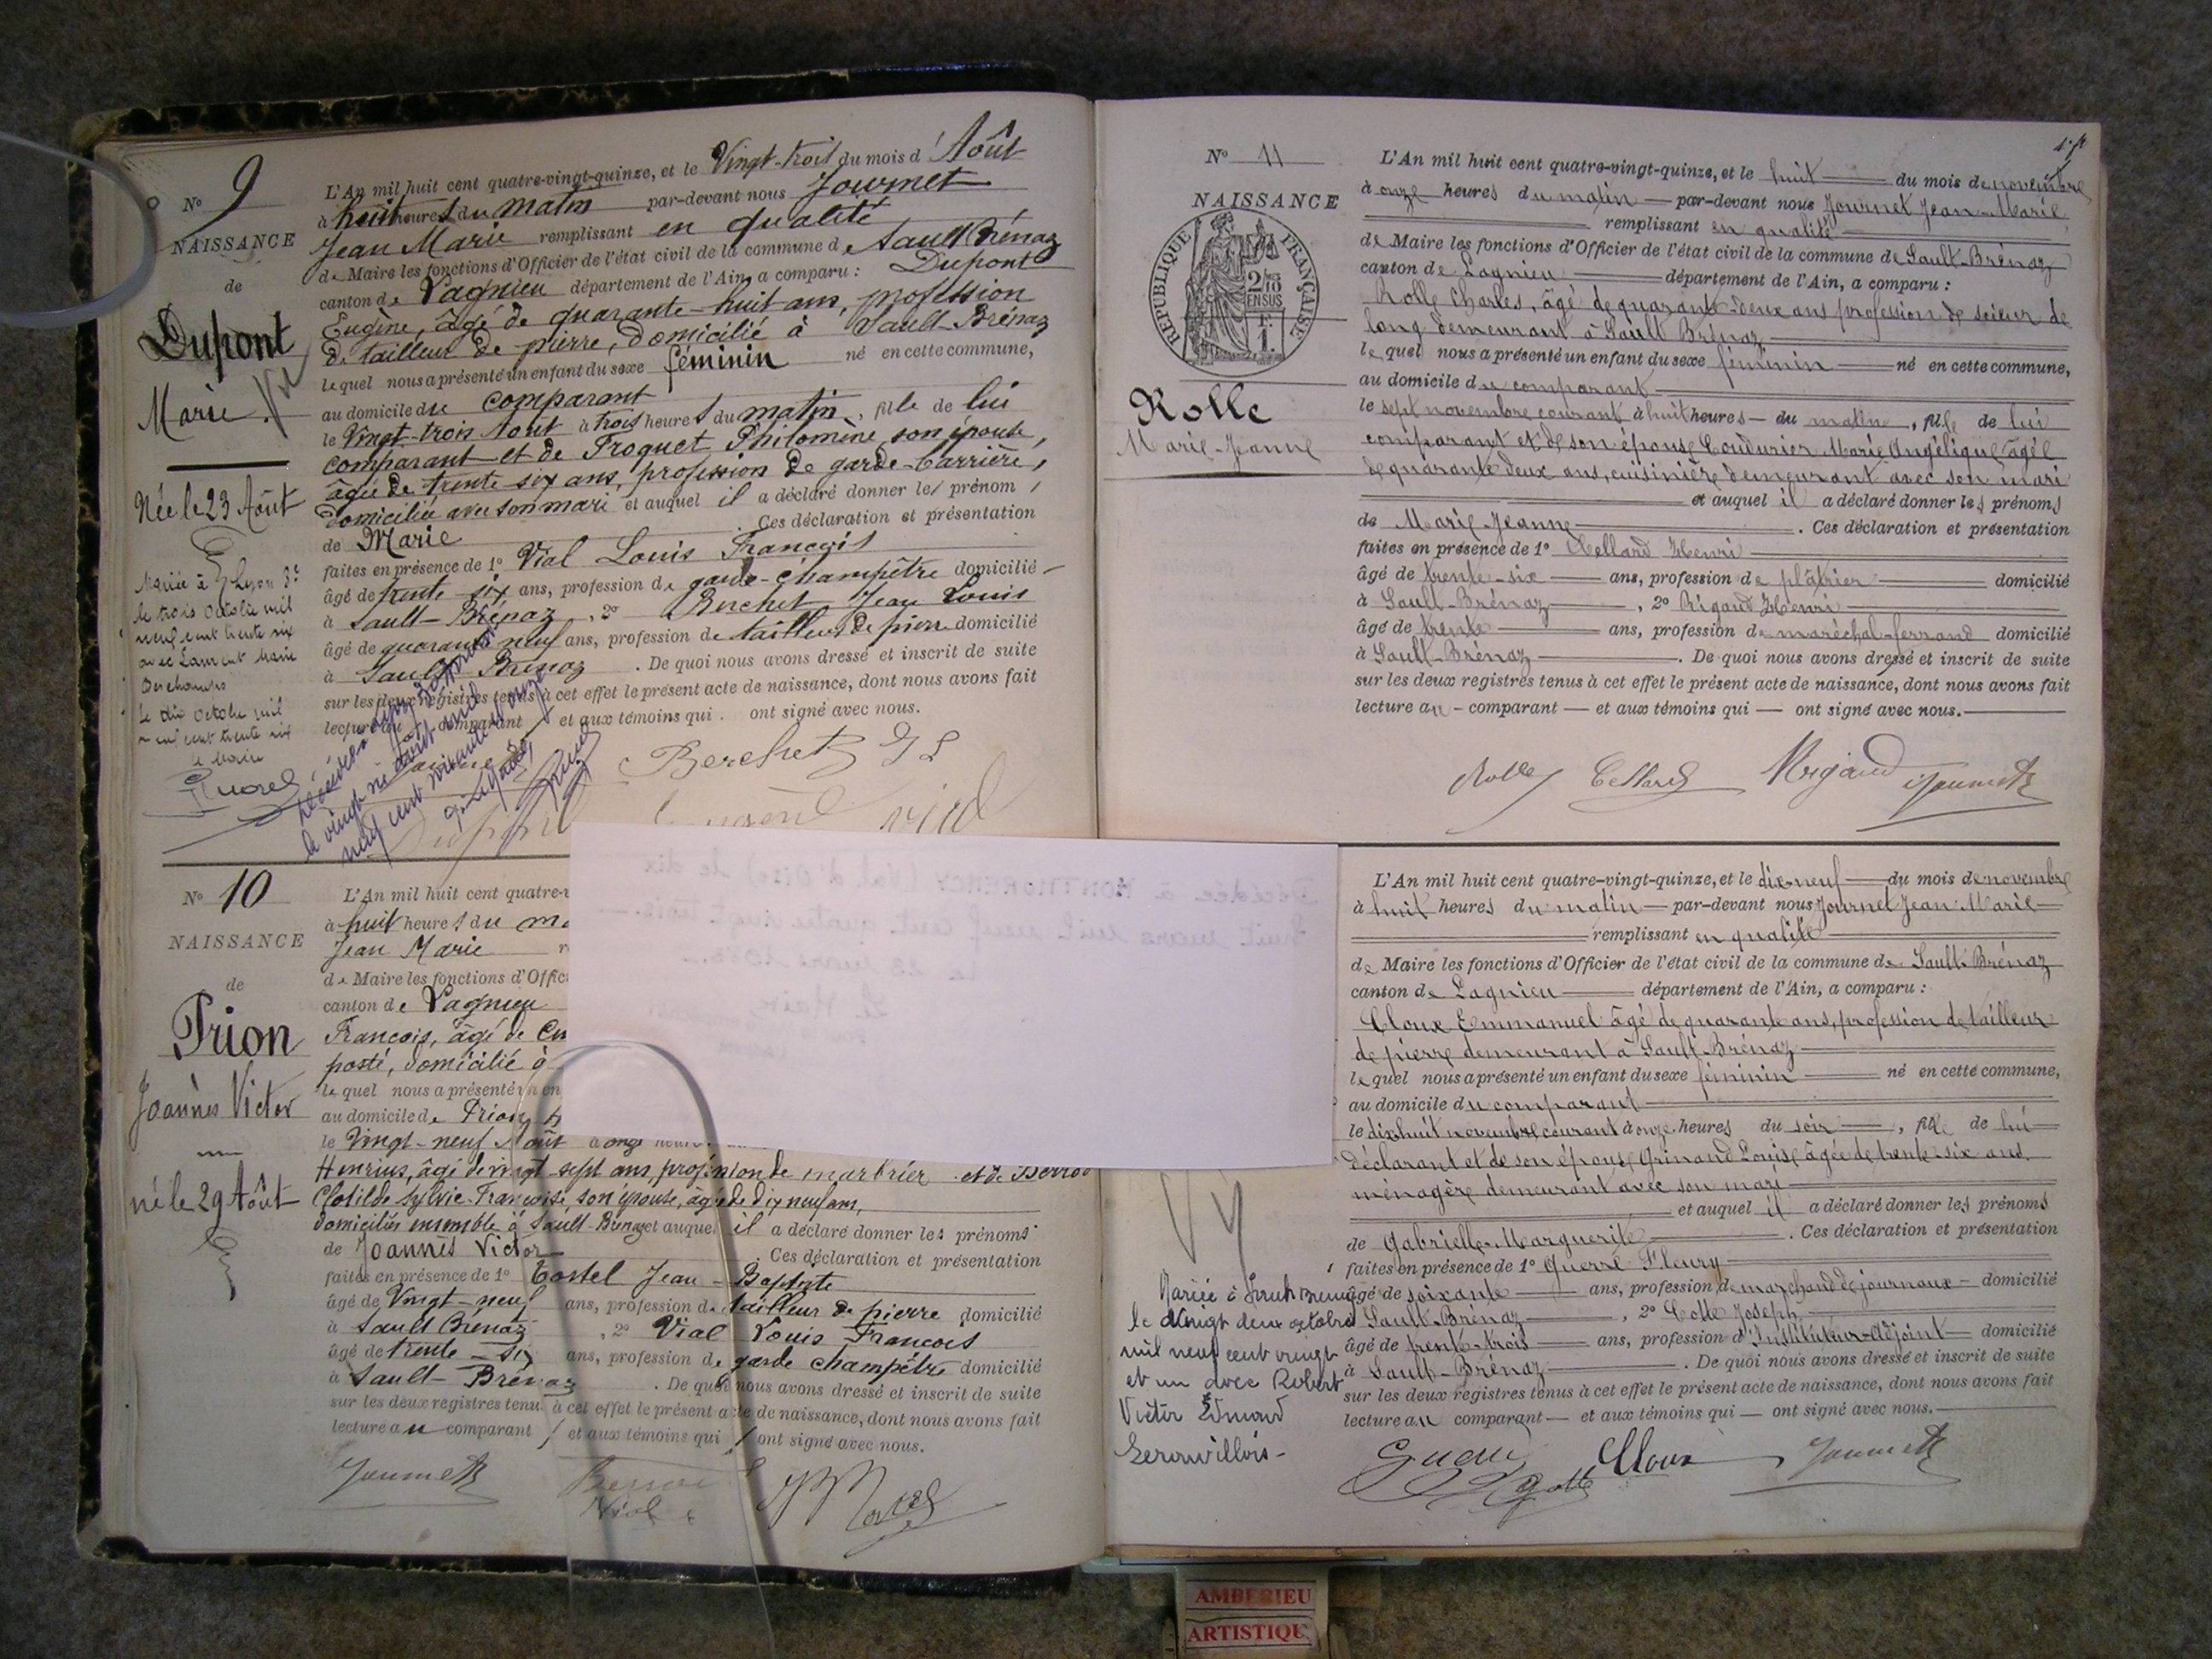 N° 9
NAISSANCE
de
Dupont
Marie
Née le 23 Août
Mariée à Lyon 3e
le trois Octobre mil
neuf cent trente six
avec Laurent Marie
Deschamps
Le dix Octobre mil
neuf cent trente six
le Maire
L'An mil huit cent quatre-vingt-quinze, et le Vingt-trois du mois d'Août
à huit heures du matin par-devant nous Journet
Jean Marie remplissant en qualité
de Maire les fonctions d'Officier de l'état civil de la commune de Sault Brénaz
canton de Lagnieu département de l'Ain, a comparu : Dupont
Eugène, âgé de quarante-huit ans, profession
de tailleur de pierre, domicilié à Sault-Brénaz
lequel nous a présenté un enfant du sexe féminin né en cette commune,
au domicile du comparant
le Vingt-trois Aout à trois heures du matin, fille de lui
comparant et de Troquet Philomène, son épouse,
âgée de trente-six ans, profession de garde-barrière,
domiciliée avec son mari et auquel il a déclaré donner le prénom
de Marie . Ces déclaration et présentation
faites en présence de 1° Vial Louis François
âgé de trente-six ans, profession de garde-champêtre domicilié
à Sault-Brénaz, 2° Berchet Jean Louis
âgé de quarante neuf ans, profession de tailleur de pierre domicilié
à Sault Brénaz . De quoi nous avons dressé et inscrit de suite
sur les deux registres tenus à cet effet le présent acte de naissance, dont nous avons fait
lecture au comparant et aux témoins qui ont signé avec nous.
Berchet J L
Vial
N° 10
NAISSANCE
de
Prion
Joannès Victor
né le 29 Août
L'An mil huit cent quatre-v
à huit heures du ma
Jean Marie
de Maire les fonctions d'Offic
canton de Lagnieu
François, âgé de
posté, domicilié à
lequel nous a présenté un en
au domicile de Prion
le Vingt-neuf Août à onze heure
Henrius, âgé de vingt-sept ans, profession de marbrier et de Berrod
Clotilde Sylvie Françoise, son épouse, âgée de dix neuf ans,
domiciliés ensemble à Sault-Brénaz et auquel il a déclaré donner les prénoms
de Joannès Victor . Ces déclaration et présentation
faites en présence de 1° Costel Jean-Baptiste
âgé de Vingt-neuf ans, profession de tailleur de pierre domicilié
à Sault Brénaz, 2° Vial Louis François
âgé de trente-six ans, profession de garde champêtre domicilié
à Sault-Brénaz . De quoi nous avons dressé et inscrit de suite
sur les deux registres tenus à cet effet le présent acte de naissance, dont nous avons fait
lecture au comparant et aux témoins qui ont signé avec nous.
Journet
Vial
N° 11
NAISSANCE
RÉPUBLIQUE FRANÇAISE
2/10 EN SUS
1 F.
Rolle
Marie-Jeanne
L'An mil huit cent quatre-vingt-quinze, et le huit du mois de novembre
à onze heures du matin par-devant nous Journet Jean-Marie
remplissant en qualité
de Maire les fonctions d'Officier de l'état civil de la commune de Sault-Brénaz
canton de Lagnieu département de l'Ain, a comparu :
Rolle Charles, âgé de quarante-deux ans profession de scieur de
long demeurant à Sault Brénaz
lequel nous a présenté un enfant du sexe féminin né en cette commune,
au domicile du comparant
le sept novembre courant à huit heures du matin, fille de lui
comparant et de son épouse Coudurier Marie Angélique âgée
de quarante deux ans, cuisinière demeurant avec son mari
et auquel il a déclaré donner les prénoms
de Marie-Jeanne . Ces déclaration et présentation
faites en présence de 1° Cellard Henri
âgé de trente-six ans, profession de plâtrier domicilié
à Sault-Brénaz, 2° Rigaud Henri
âgé de trente ans, profession de maréchal-ferrand domicilié
à Sault-Brénaz . De quoi nous avons dressé et inscrit de suite
sur les deux registres tenus à cet effet le présent acte de naissance, dont nous avons fait
lecture au comparant et aux témoins qui ont signé avec nous.
Rolle Cellard Rigaud Journet
L'An mil huit cent quatre-vingt-quinze, et le dix-neuf du mois de novembre
à huit heures du matin par-devant nous Journet Jean-Marie
remplissant en qualité
de Maire les fonctions d'Officier de l'état civil de la commune de Sault-Brénaz
canton de Lagnieu département de l'Ain, a comparu :
Cloux Emmanuel âgé de quarante ans, profession de tailleur
de pierre demeurant à Sault-Brénaz
lequel nous a présenté un enfant du sexe féminin né en cette commune,
au domicile du comparant
le dix huit novembre courant à onze heures du soir, fille de lui
déclarant et de son épouse Grinand Louise âgée de trente-six ans,
ménagère demeurant avec son mari
et auquel il a déclaré donner les prénoms
de Gabrielle-Marguerite . Ces déclaration et présentation
faites en présence de 1° Guerre Fleury
âgé de soixante ans, profession de marchand de journaux domicilié
à Sault-Brénaz, 2° Cotte Joseph
âgé de trente-trois ans, profession d'Instituteur-Adjoint domicilié
à Sault-Brénaz . De quoi nous avons dressé et inscrit de suite
sur les deux registres tenus à cet effet le présent acte de naissance, dont nous avons fait
lecture au comparant et aux témoins qui ont signé avec nous.
Cloux Journet
Mariée à Sault Brenaz
le vingt deux octobre
mil neuf cent vingt
et un avec Robert
Victor Edmond
AMBERIEU
ARTISTIQU